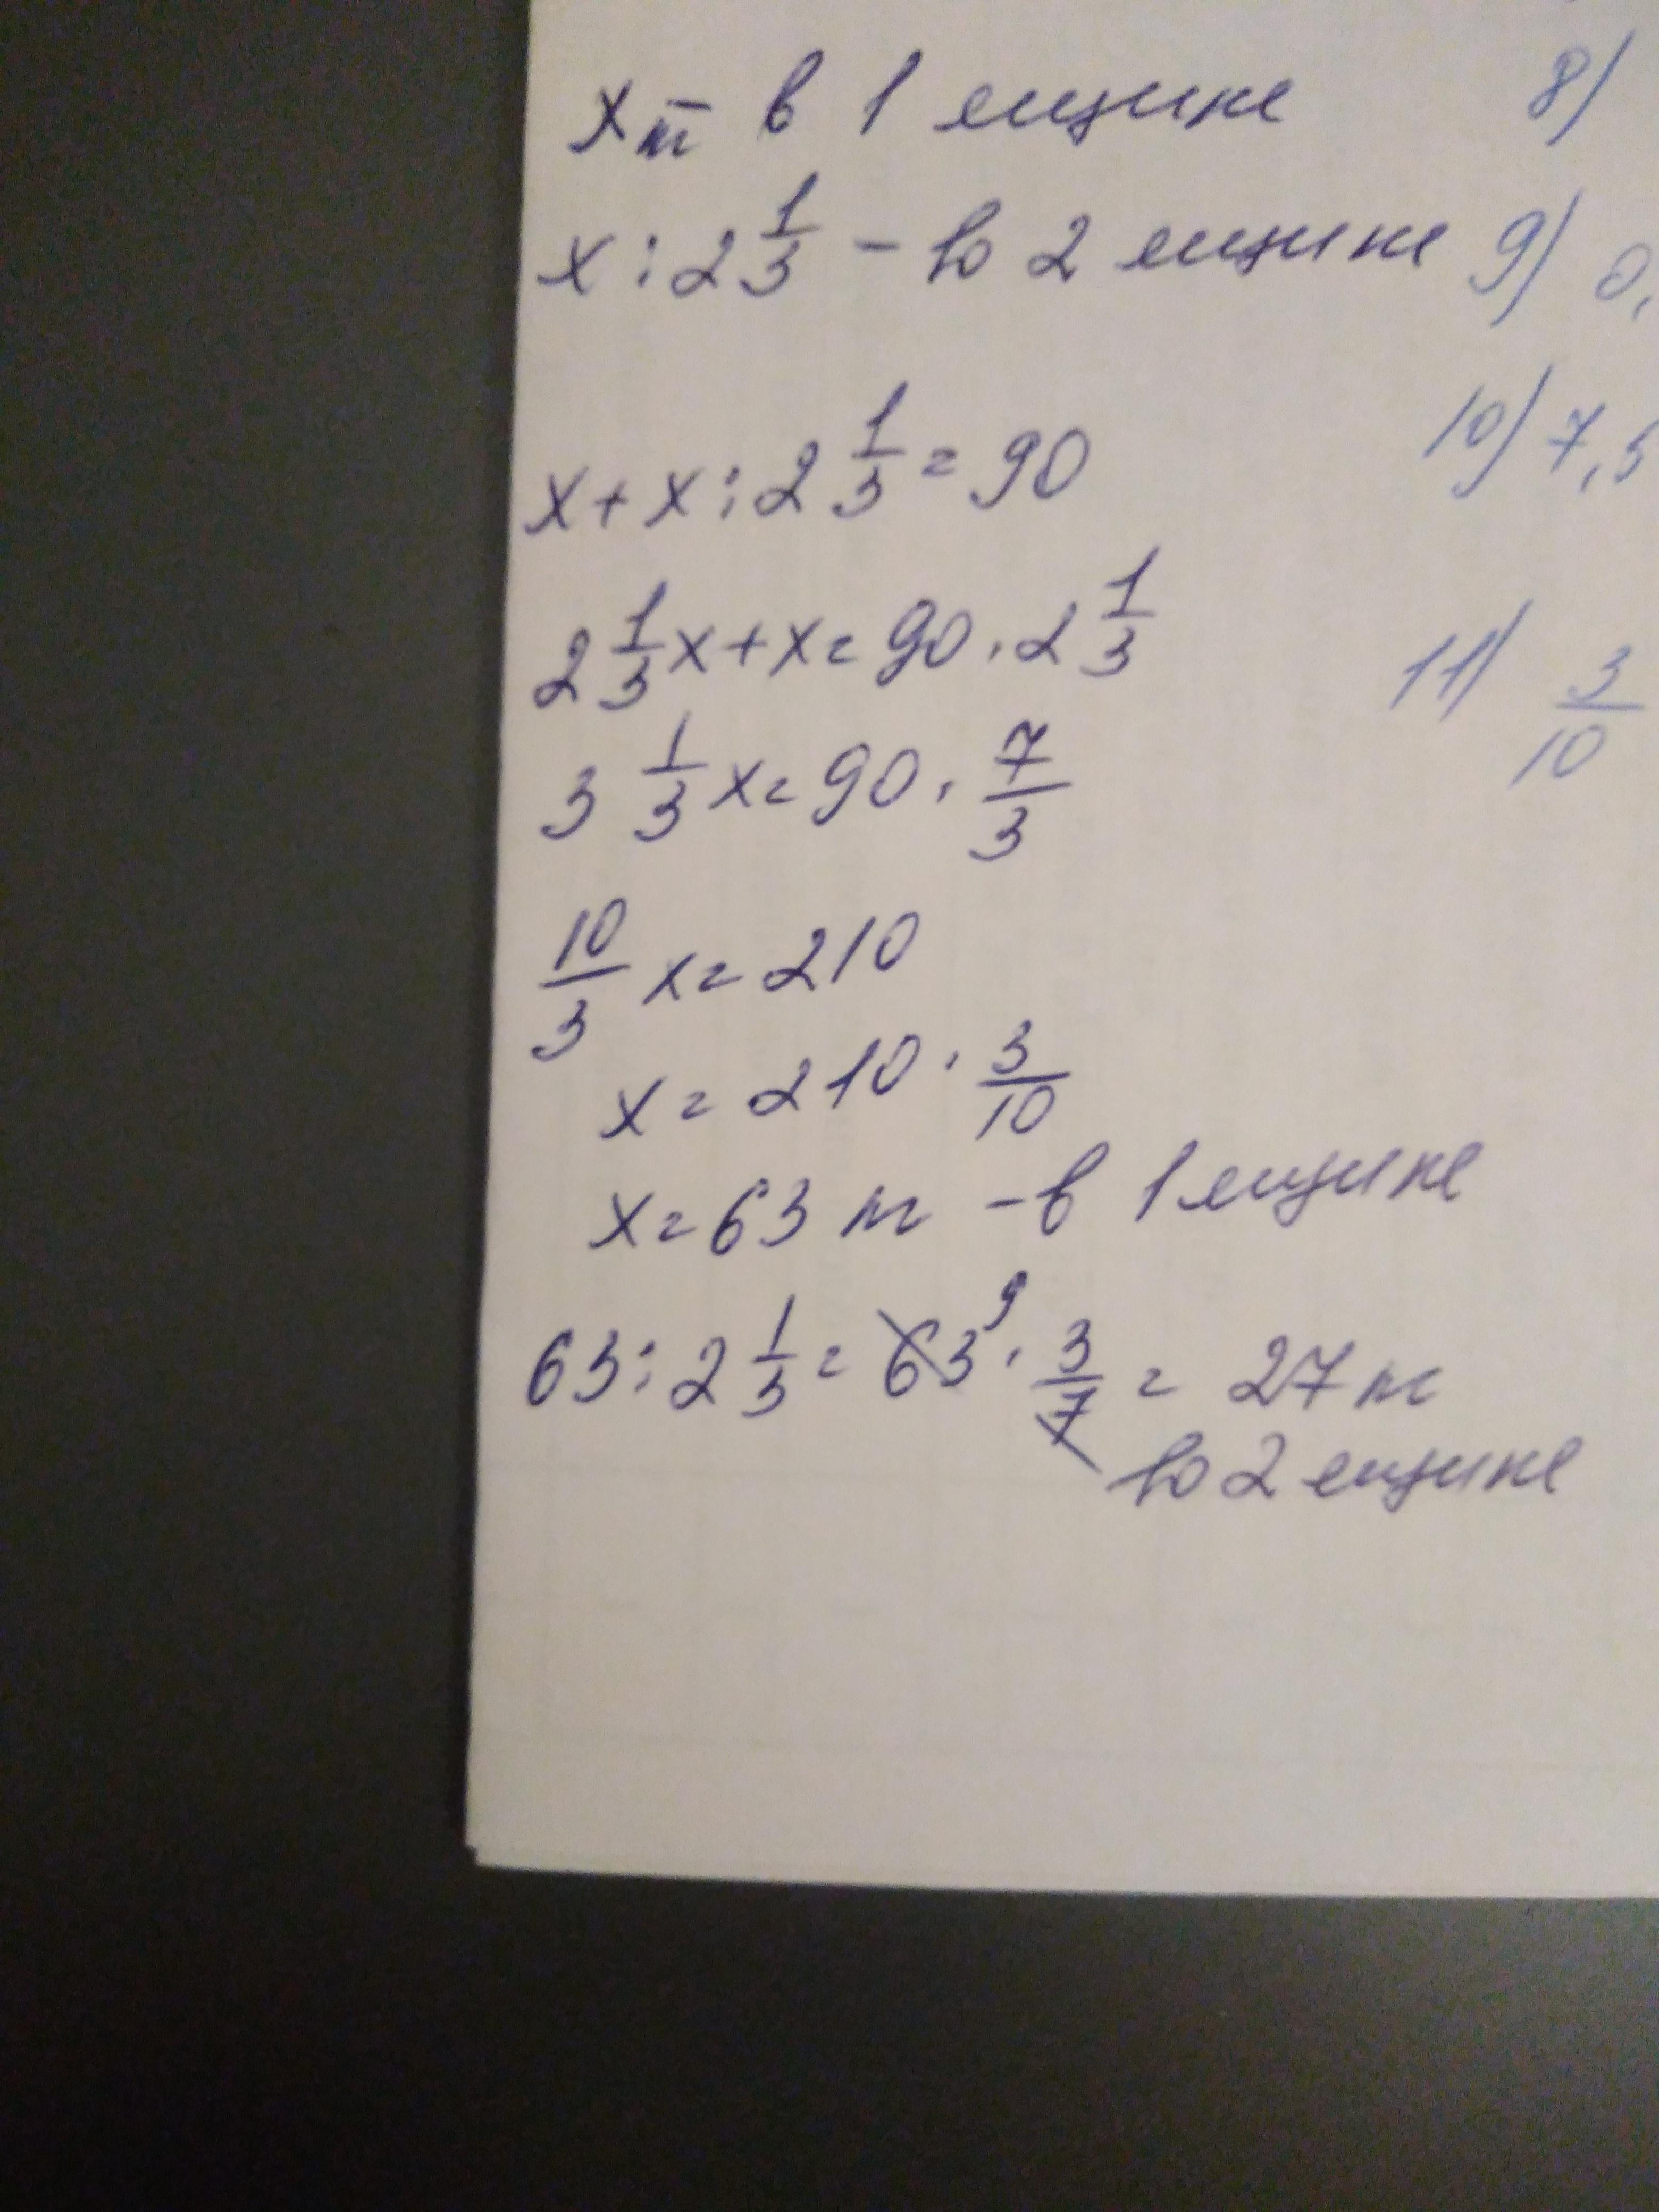 x кг – в 1 ящике
x : 2 1/3 – во 2 ящике
x + x : 2 1/3 = 90
2 1/3 x + x = 90 · 2 1/3
3 1/3 x = 90 · 7/3
10/3 x = 210
x = 210 · 3/10
x = 63 кг – в 1 ящике
63 : 2 1/3 = 63 9 · 3/7 = 27 кг
во 2 ящике
8)
9) 0,
10) 7,5
11) 3/10